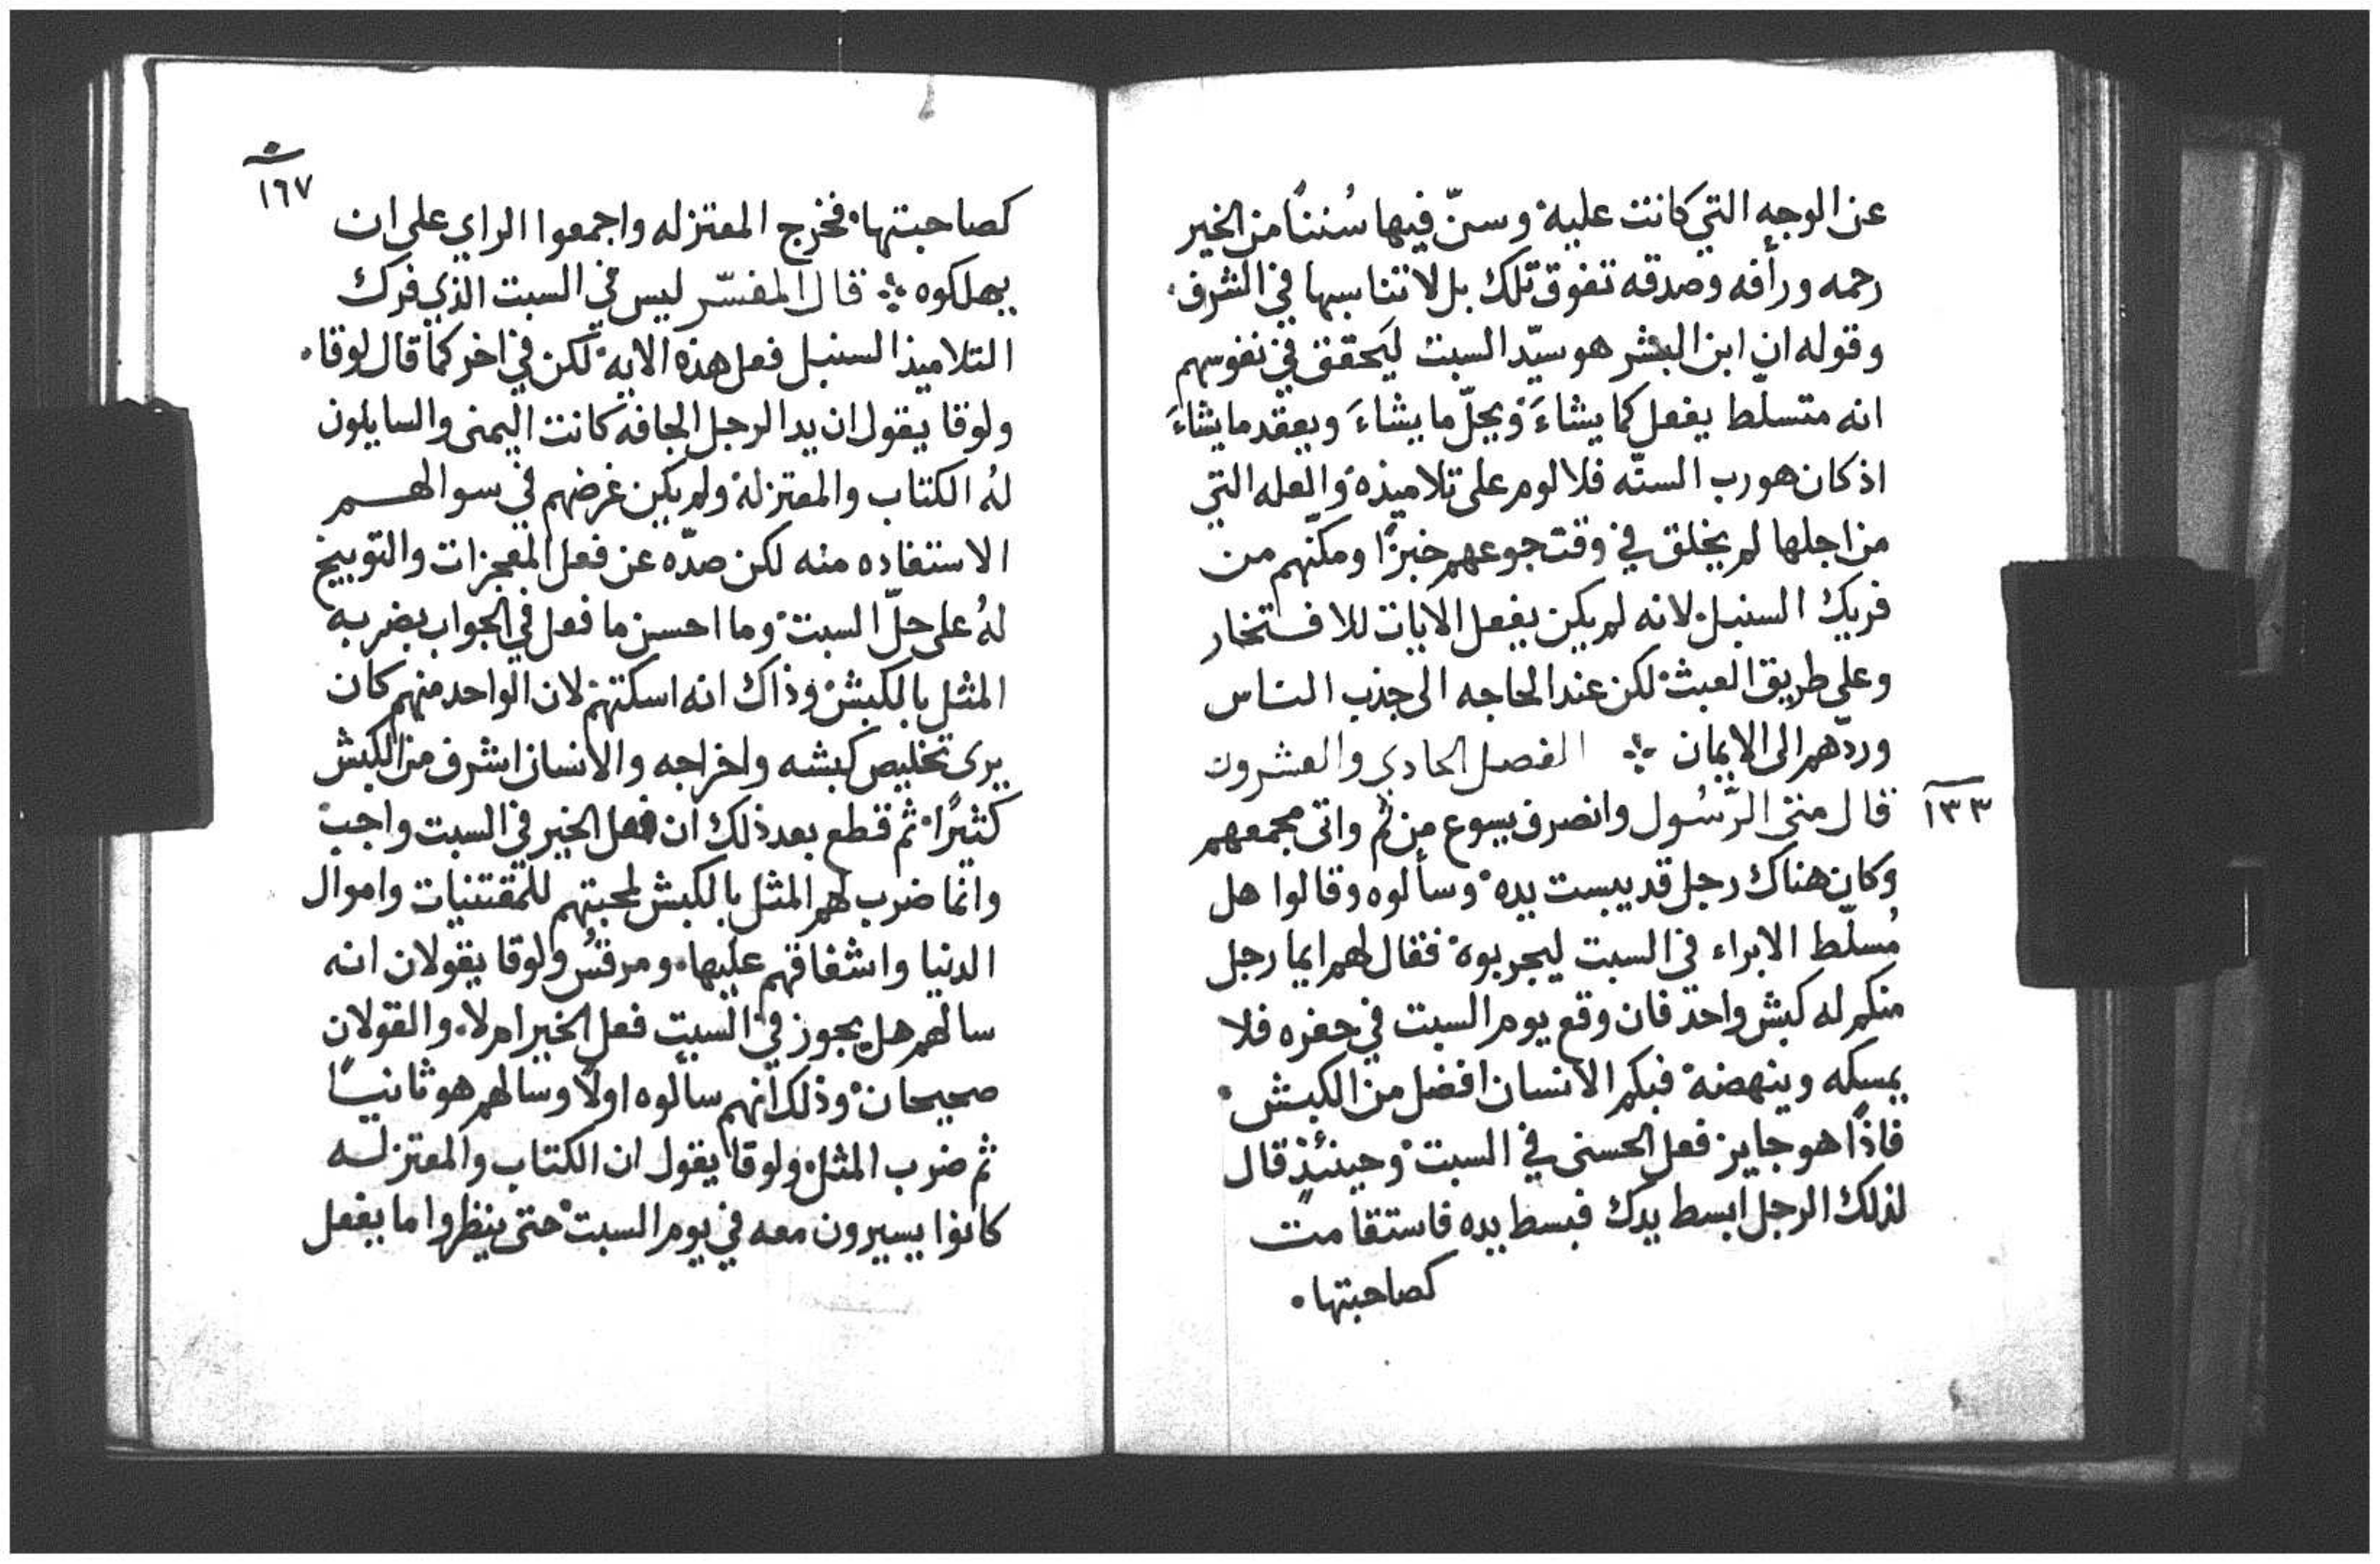 عن الوجه التي كانت عليه وسنّ فيها سُننًا من الخير
رحمه ورأفه وصدقه تفوق تلك بل لا تناسبها في الشرف
وقوله ان ابن البشر هو سيّد السبت ليحقق في نفوسهم
انه متسلّط يفعل كما يشاءَ ويحلّ ما يشاءَ ويعقد ما يشاءَ
اذ كان هو رب السنّه فلا لوم على تلاميذه والعله التي
من اجلها لم يخلق في وقت جوعهم خبزًا ومكّنهم من
فريك السنبل لانه لم يكن يفعل الآيات للافتخار
وعلى طريق العبث لكن عند الحاجه الى جذب الناس
وردّهم الى الايمان ⁘ الفصل الحادي والعشرون
١٣٣
قال متى الرّسُول وانصرف يسوع من ثم واتى مجمعهم
وكان هناك رجل قد يبست يده وسألوه وقالوا هل
مُسلّط الابراء في السبت ليجربوه فقال لهم ايما رجل
منكم له كبش واحد فان وقع يوم السبت في حفره فلا
يمسكه وينهضه فبكم الانسان افضل من الكبش
فاذًا هو جايز فعل الحسنى في السبت وحينئذٍ قال
لذلك الرجل ابسط يدك فبسط يده فاستقامت
كصاحبتها
١٦٧
كصاحبتها فخرج المعتزله واجمعوا الراي على ان
يهلكوه ⁘ قال المفسّر ليس في السبت الذي فرك
التلاميذ السنبل فعل هذه الايه لكن في اخر كما قال لوقا
ولوقا يقول ان يد الرجل الجافه كانت اليمنى والسايلون
لهُ الكتاب والمعتزله ولم يكن غرضهم في سوالهم
الاستفاده منه لكن صدّه عن فعل المعجزات والتوبيخ
لهُ على حلّ السبت وما احسن ما فعل في الجواب بضربه
المثل بالكبش وذاك انه اسكتهم لان الواحد منهم كان
يرى تخليص كبشه واخراجه والانسان اشرف من الكبش
كثيرًا ثم قطع بعد ذلك ان فعل الخير في السبت واجب
وانما ضرب لهم المثل بالكبش لمحبتهم للمقتنيات واموال
الدنيا واشفاقهم عليها ومرقسُ ولوقا يقولان انه
سالهم هل يجوز في السبت فعل الخير ام لا والقولان
صحيحان وذلك انهم سألوه اولًا وسالهم هو ثانيًا
ثم ضرب المثل ولوقا يقول ان الكتاب والمعتزله
كانوا يسيرون معه في يوم السبت حتى ينظروا ما يفعل